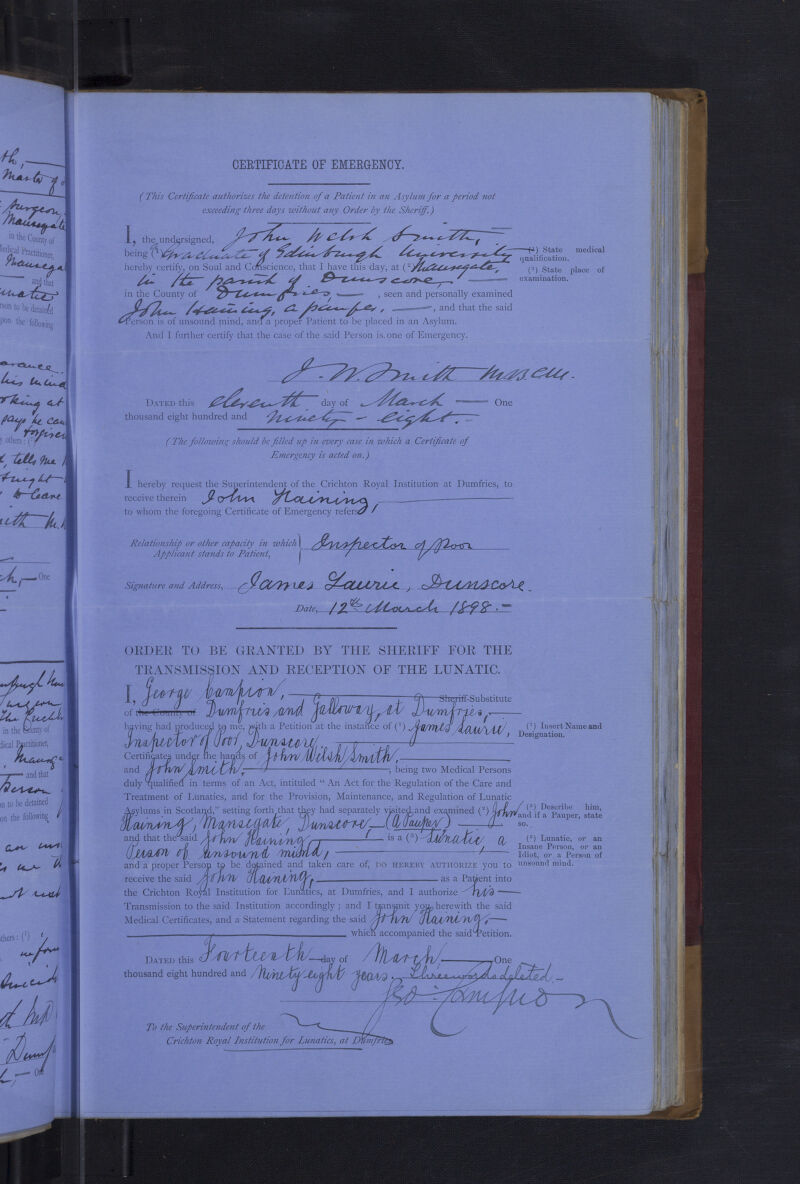 CERTIFICATE OF EMERGENCY.
(This Certificate authorizes the detention of a Patient in an Asylum for a period not
exceeding three days without any Order by the Sheriff.)
I, the undersigned, John Welsh Smith,
being (¹) Graduate of Edinburgh University
hereby certify, on Soul and Conscience, that I have this day, at (²) Mansegate,
in the parish of Dunscore,
in the County of Dumfries, , seen and personally examined
John Haining, a pauper, , and that the said
Person is of unsound mind, and a proper Patient to be placed in an Asylum.
And I further certify that the case of the said Person is one of Emergency.
(¹) State medical
qualification.
(²) State place of
examination.
J. W. Smith M.B.C.M.
DATED this eleventh day of March One
thousand eight hundred and ninety-eight.
(The following should be filled up in every case in which a Certificate of
Emergency is acted on.)
I hereby request the Superintendent of the Crichton Royal Institution at Dumfries, to
receive therein John Haining,
to whom the foregoing Certificate of Emergency refers,
Relationship or other capacity in which
Applicant stands to Patient, } Inspector of Poor
Signature and Address, James Laurie, Dunscore.
Date, 12th March 1898.
ORDER TO BE GRANTED BY THE SHERIFF FOR THE
TRANSMISSION AND RECEPTION OF THE LUNATIC.
I, George Campion, Sheriff-Substitute
of the County of Dumfries and Galloway, at Dumfries,
having had produced to me, with a Petition at the instance of (¹) James Laurie,
Inspector of Poor, Dunscore,
Certificates under the hands of John Welsh Smith,
and John Smith, , being two Medical Persons
duly qualified in terms of an Act, intituled "An Act for the Regulation of the Care and
Treatment of Lunatics, and for the Provision, Maintenance, and Regulation of Lunatic
Asylums in Scotland," setting forth that they had separately visited and examined (²) John
Haining, Mansegate, Dunscore (a Pauper)
and that the said John Haining is a (³) Lunatic, a
Person of unsound mind,
and a proper Person to be detained and taken care of, DO HEREBY AUTHORIZE you to
receive the said John Haining, as a Patient into
the Crichton Royal Institution for Lunatics, at Dumfries, and I authorize his
Transmission to the said Institution accordingly; and I transmit you herewith the said
Medical Certificates, and a Statement regarding the said John Haining,
which accompanied the said Petition.
(¹) Insert Name and
Designation.
(²) Describe him,
and if a Pauper, state
so.
(³) Lunatic, or an
Insane Person, or an
Idiot, or a Person of
unsound mind.
DATED this Fourteenth day of March One
thousand eight hundred and Ninety eight years. Three words deleted
Geo. Campion
To the Superintendent of the
Crichton Royal Institution for Lunatics, at Dumfries